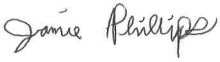 Jamie Phillips